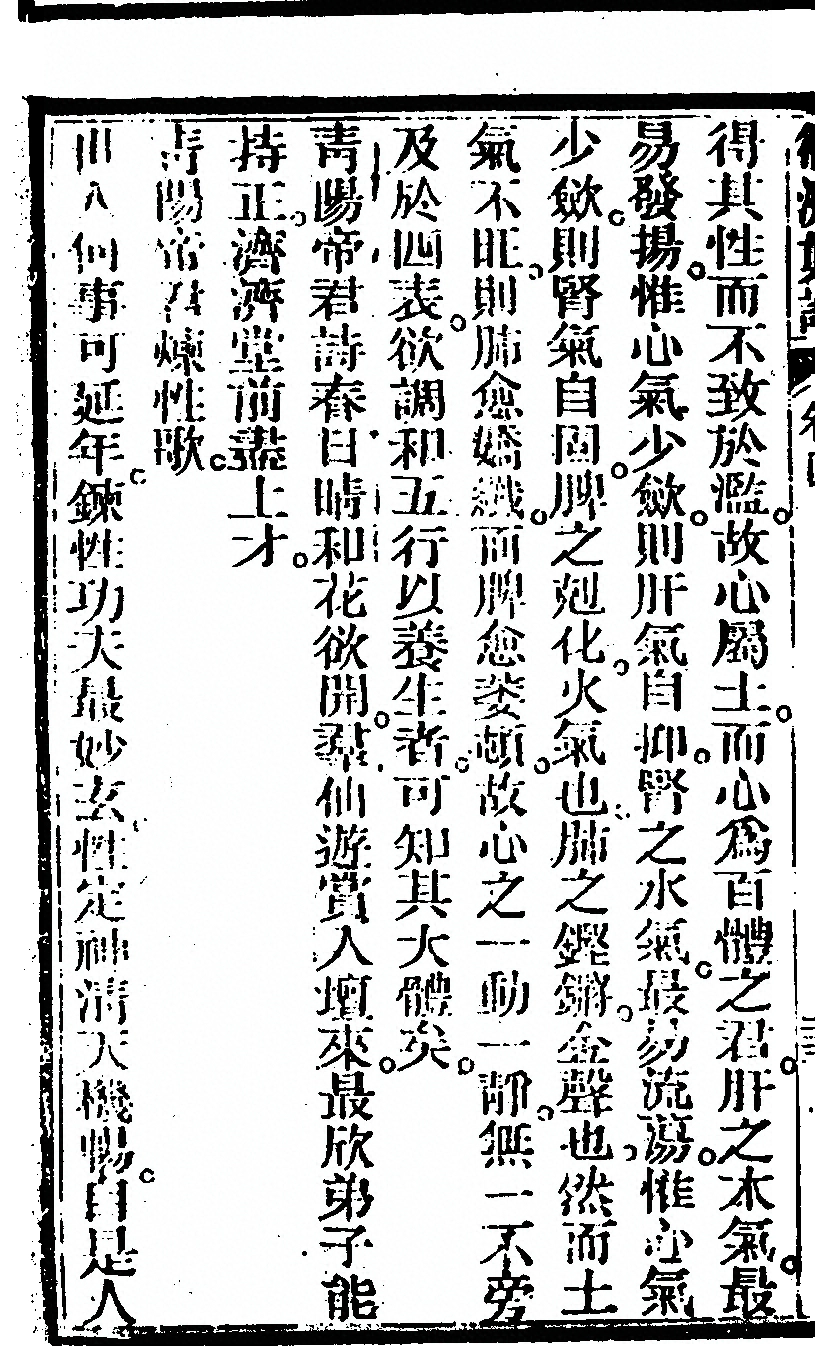 得其性而不致於濫。故心屬土。而心爲百體之君。肝之木氣。最
易發揚。惟心氣少斂。則肝氣自抑。腎之水氣。最易流蕩。惟心氣
少斂。則腎氣自固。脾之剋化。火氣也。肺之鏗鏘。金聲也。然而土
氣不旺。則肺愈嬌纖。而脾愈萎頓。故心之一動一靜。無一不旁
及於四表。欲調和五行以養生者。可知其大體矣。
青陽帝君詩春日晴和花欲開。羣仙遊賞入壇來。最欣弟子能
持正。濟濟堂前盡上才。
青陽帝君煉性歌。
何事可延年。鍊性功夫最妙玄。性定神清天機暢。自是人